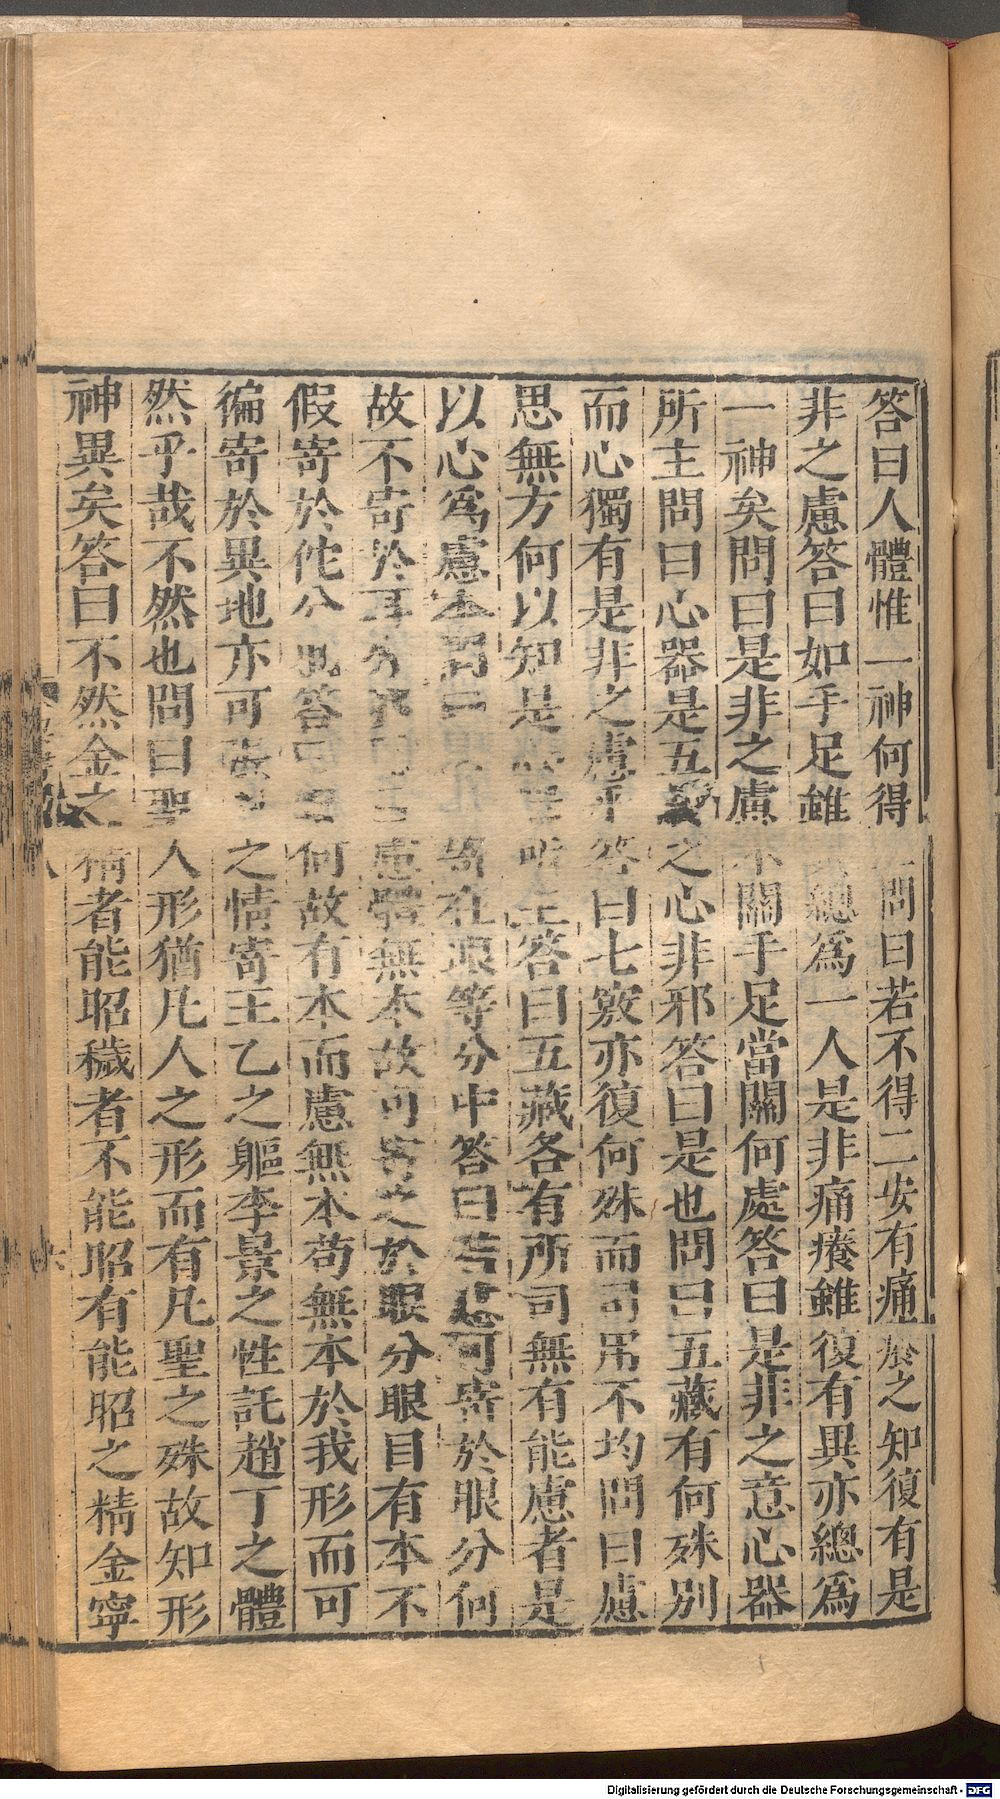 答曰人體惟一神何得二問曰若不得二安有痛癢之知復有是
非之慮答曰如手足雖異總爲一人是非痛癢雖復有異亦總爲
一神矣問曰是非之慮不關手足當關何處答曰是非之意心器
所主問曰心器是五藏之心非邪答曰是也問曰五藏有何殊別
而心獨有是非之慮乎答曰七竅亦復何殊而司用不均問曰慮
思無方何以知是心器所主答曰五藏各有所司無有能慮者是
以心爲慮本問曰何不寄在眼等分中答曰若慮可寄於眼分何
故不寄於耳分邪問曰慮體無本故可寄之於眼分眼目有本不
假寄於佗分也答曰眼何故有本而慮無本苟無本於我形而可
徧寄於異地亦可張甲之情寄王乙之軀李景之性託趙丁之體
然乎哉不然也問曰聖人形猶凡人之形而有凡聖之殊故知形
神異矣答曰不然金之精者能昭穢者不能昭有能昭之精金寧
Digitalisierung gefördert durch die Deutsche Forschungsgemeinschaft - DFG